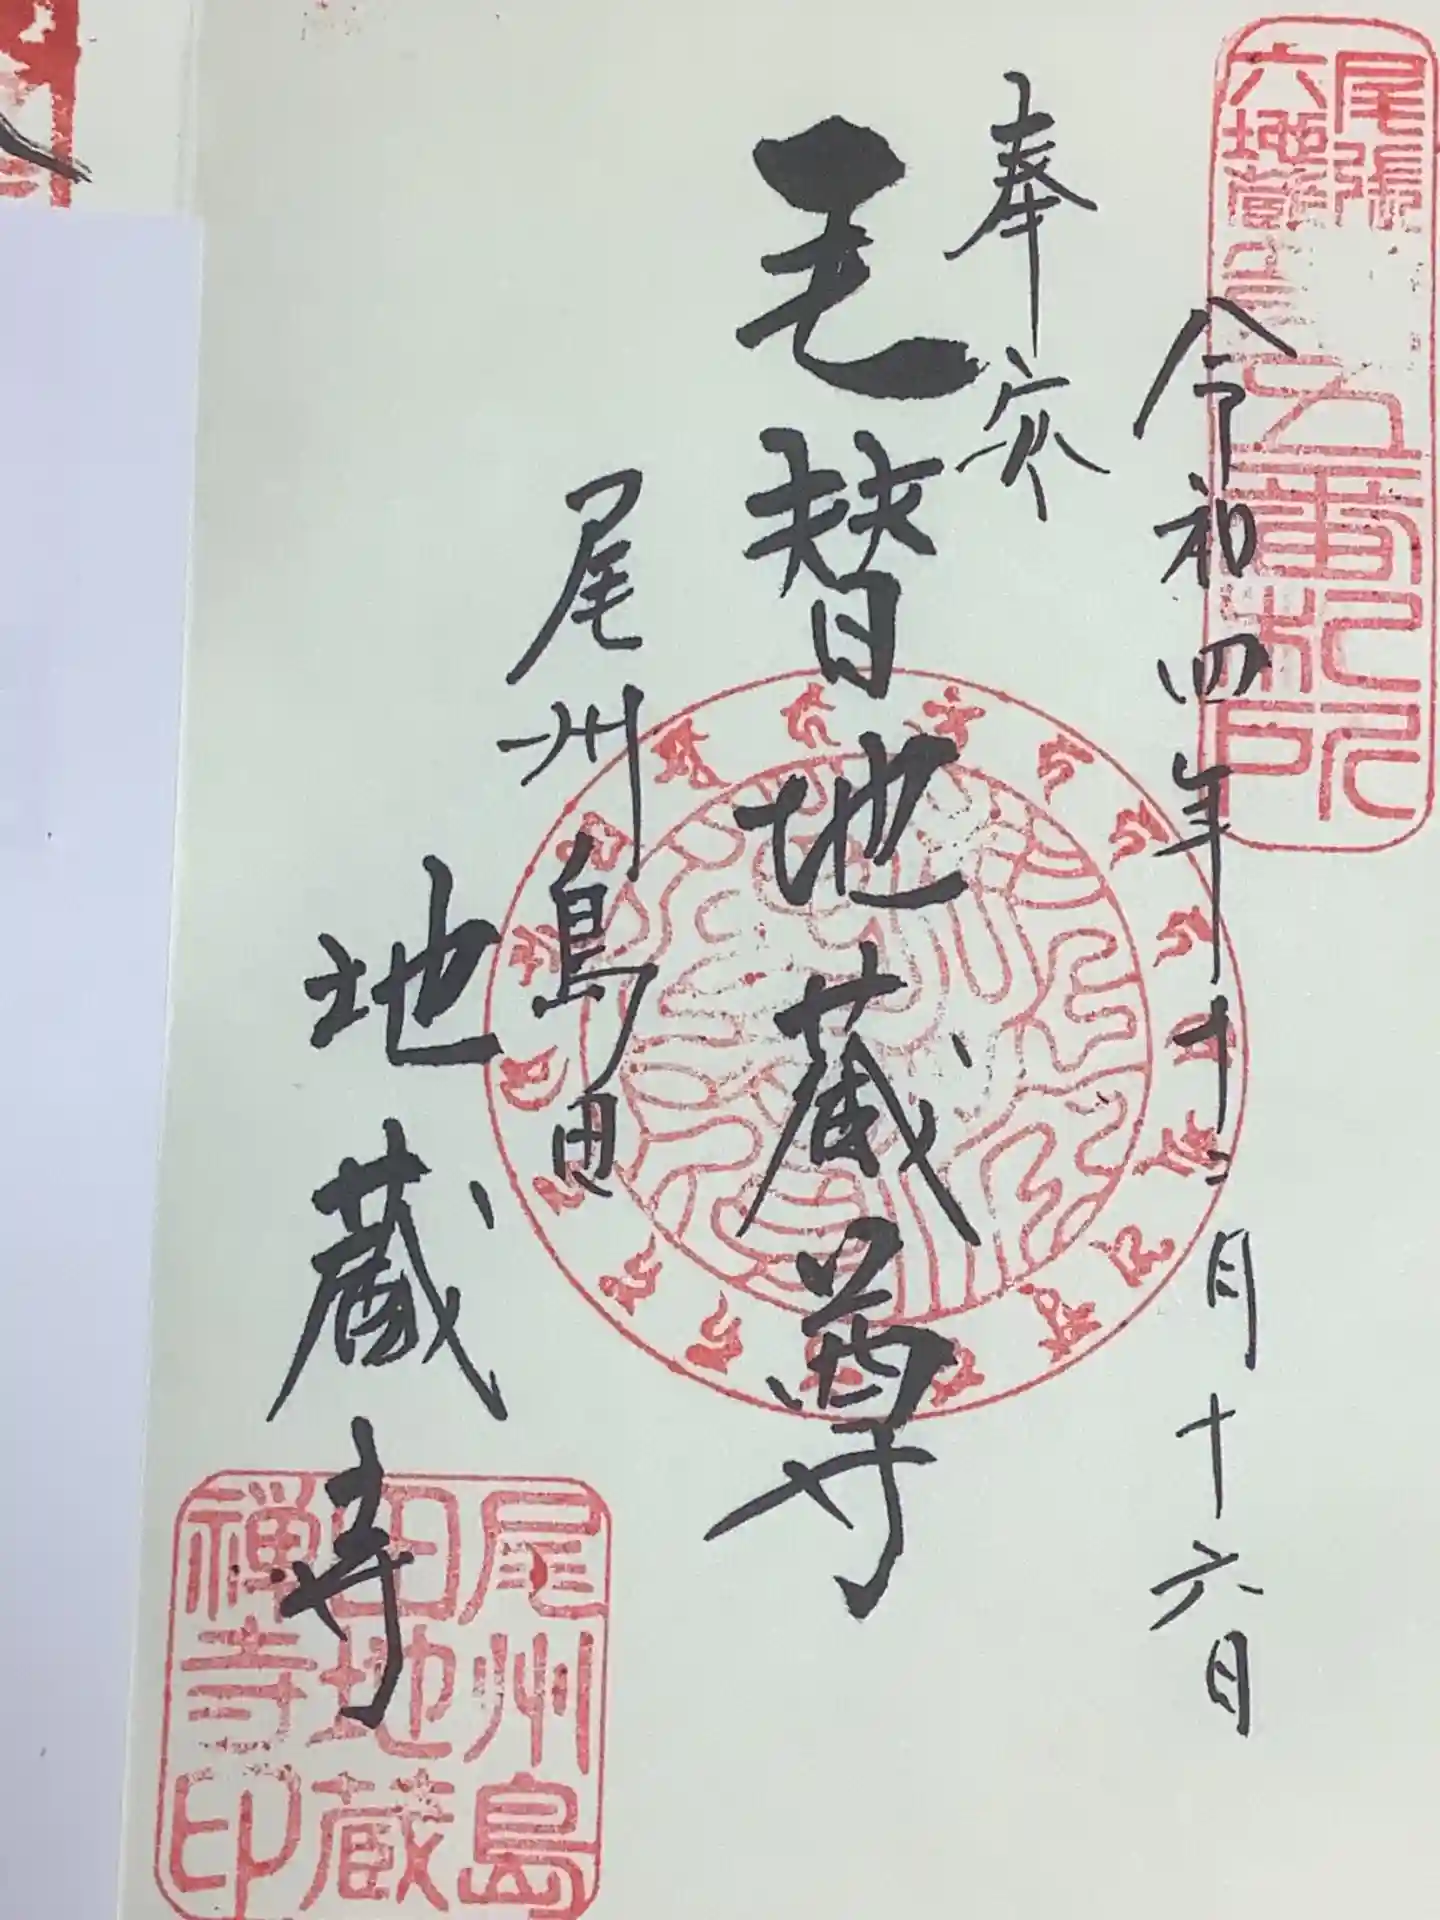 尾張
六地蔵
五番札所
令和四年十二月十六日
奉
毛替地蔵尊
尾州島田
地蔵寺
尾州島
田地蔵
禅寺印